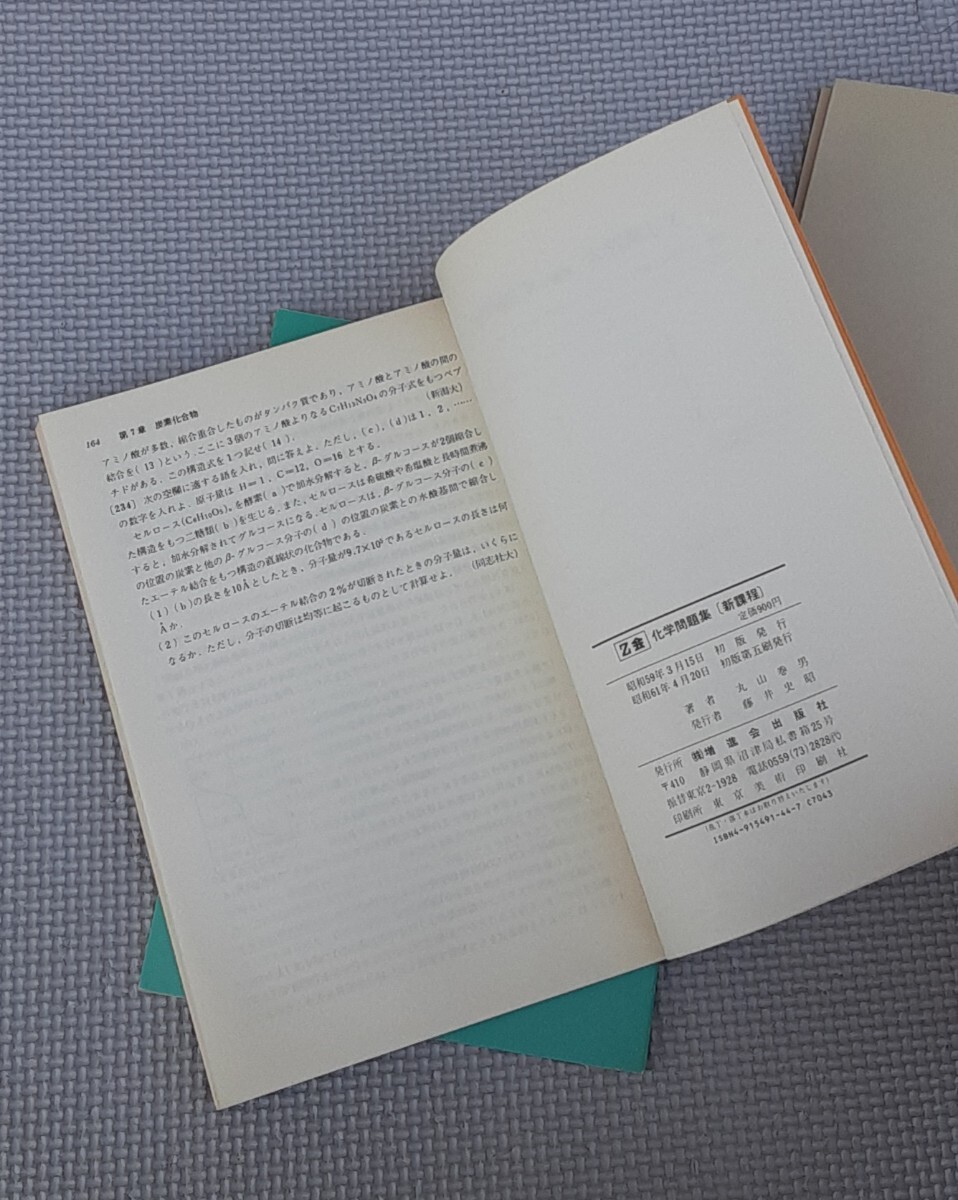 164 第7章 炭素化合物
アミノ酸が多数,縮合重合したものがタンパク質であり,アミノ酸とアミノ酸の間の
結合を( 13 )という.ここに3個のアミノ酸よりなるC₇H₁₃N₃O₄の分子式をもつペプ
チドがある.この構造式を1つ記せ( 14 ). (新潟大)
〔234〕 次の空欄に適する語を入れ,問に答えよ.ただし,(c),(d)は1,2,……
の数字を入れよ.原子量は H=1,C=12,O=16 とする.
セルロース(C₆H₁₀O₅)ₙを酵素( a )で加水分解すると,β-グルコースが2個縮合し
た構造をもつ二糖類( b )を生じる.また,セルロースは希硫酸や希塩酸と長時間煮沸
すると,加水分解されてグルコースになる.セルロースは,β-グルコース分子の( c )
の位置の炭素と他のβ-グルコース分子の( d )の位置の炭素との水酸基間で縮合し
たエーテル結合をもつ構造の直鎖状の化合物である.
(1) ( b )の長さを10Åとしたとき,分子量が9.7×10⁵であるセルロースの長さは何
Åか.
(2) このセルロースのエーテル結合の2%が切断されたときの分子量は,いくらに
なるか.ただし,分子の切断は均等に起こるものとして計算せよ. (同志社大)
Z会 化学問題集〔新課程〕
定価900円
昭和59年3月15日 初版発行
昭和61年4月20日 初版第五刷発行
著者 丸山巻男
発行者 藤井史昭
発行所 ㈱増進会出版社
〒410 静岡県沼津局私書箱25号
振替東京2-1928 電話0559(73)2828代
印刷所 東京美術印刷社
(乱丁・落丁本はお取り替えいたします)
ISBN4-915491-44-7 C7043